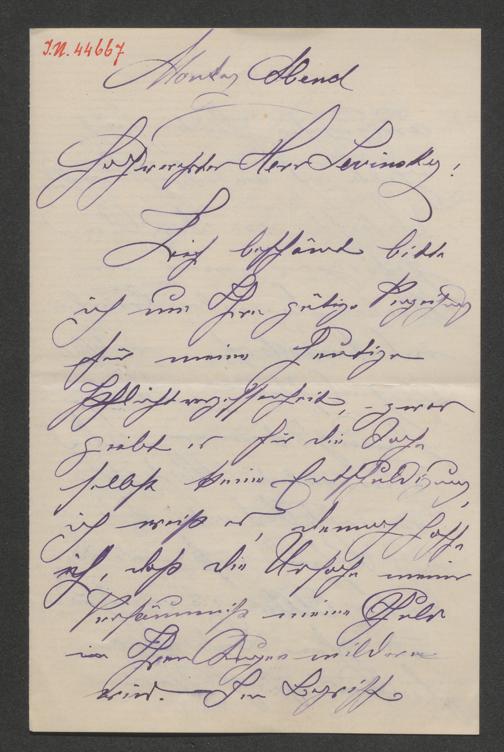 I.N. 44667
Montag Abend
Hochverehrter Herr Lewinsky!
Tief beschämt bitte
ich um Ihre gütige Verzeihung
für meine heutige
Pflichtvergessenheit, – zwar
giebt es für die Sache
selbst keine Entschuldigung,
ich weiß es, dennoch hoffe
ich, daß die Ursache meiner
Versäumniß meine Schuld
in Ihren Augen mildern
wird. – Im Begriffe